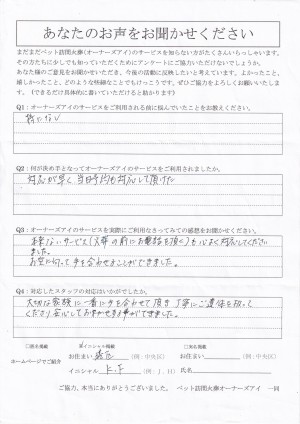 あなたのお声をお聞かせください
まだまだペット訪問火葬(オーナーズアイ)のサービスを知らない方がたくさんいらっしゃいます。
その方たちにも少しでも知っていただくためにアンケートにご協力いただけないでしょうか。
あなた様のご意見をお聞かせいただき、今後の活動に反映したいと考えています。よかったこと、
嬉しかったこと、どのような些細なことでもけっこうです。ぜひご協力をよろしくお願いいたします。
(できるだけ具体的に書いていただけると助かります)
Q1:オーナーズアイのサービスをご利用される前に悩んでいたことをお教えください。
特にない
Q2:何が決め手となってオーナーズアイのサービスをご利用されましたか。
対応が早く、当日予約も対応して頂けた
Q3:オーナーズアイのサービスを実際にご利用なさってみての感想をお聞かせください。
ました。
手を合わせることができました。
Q4:対応したスタッフの対応はいかがでしたか。
大切な家族に一番に手を合わせて頂き、丁寧にご遺体を扱って
くださり安心しておまかせする事ができました。
□匿名掲載
イニシャル掲載
□実名掲載
ホームページでご紹介
お住まい
(例:中央区)
お住まい
(例:中央区)
イニシャル K.F (例:J.H)
氏名
ご協力、本当にありがとうございました。 ペット訪問火葬オーナーズアイ 一同